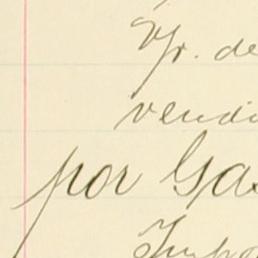 Yr. de
vendi
por Gas
Impo